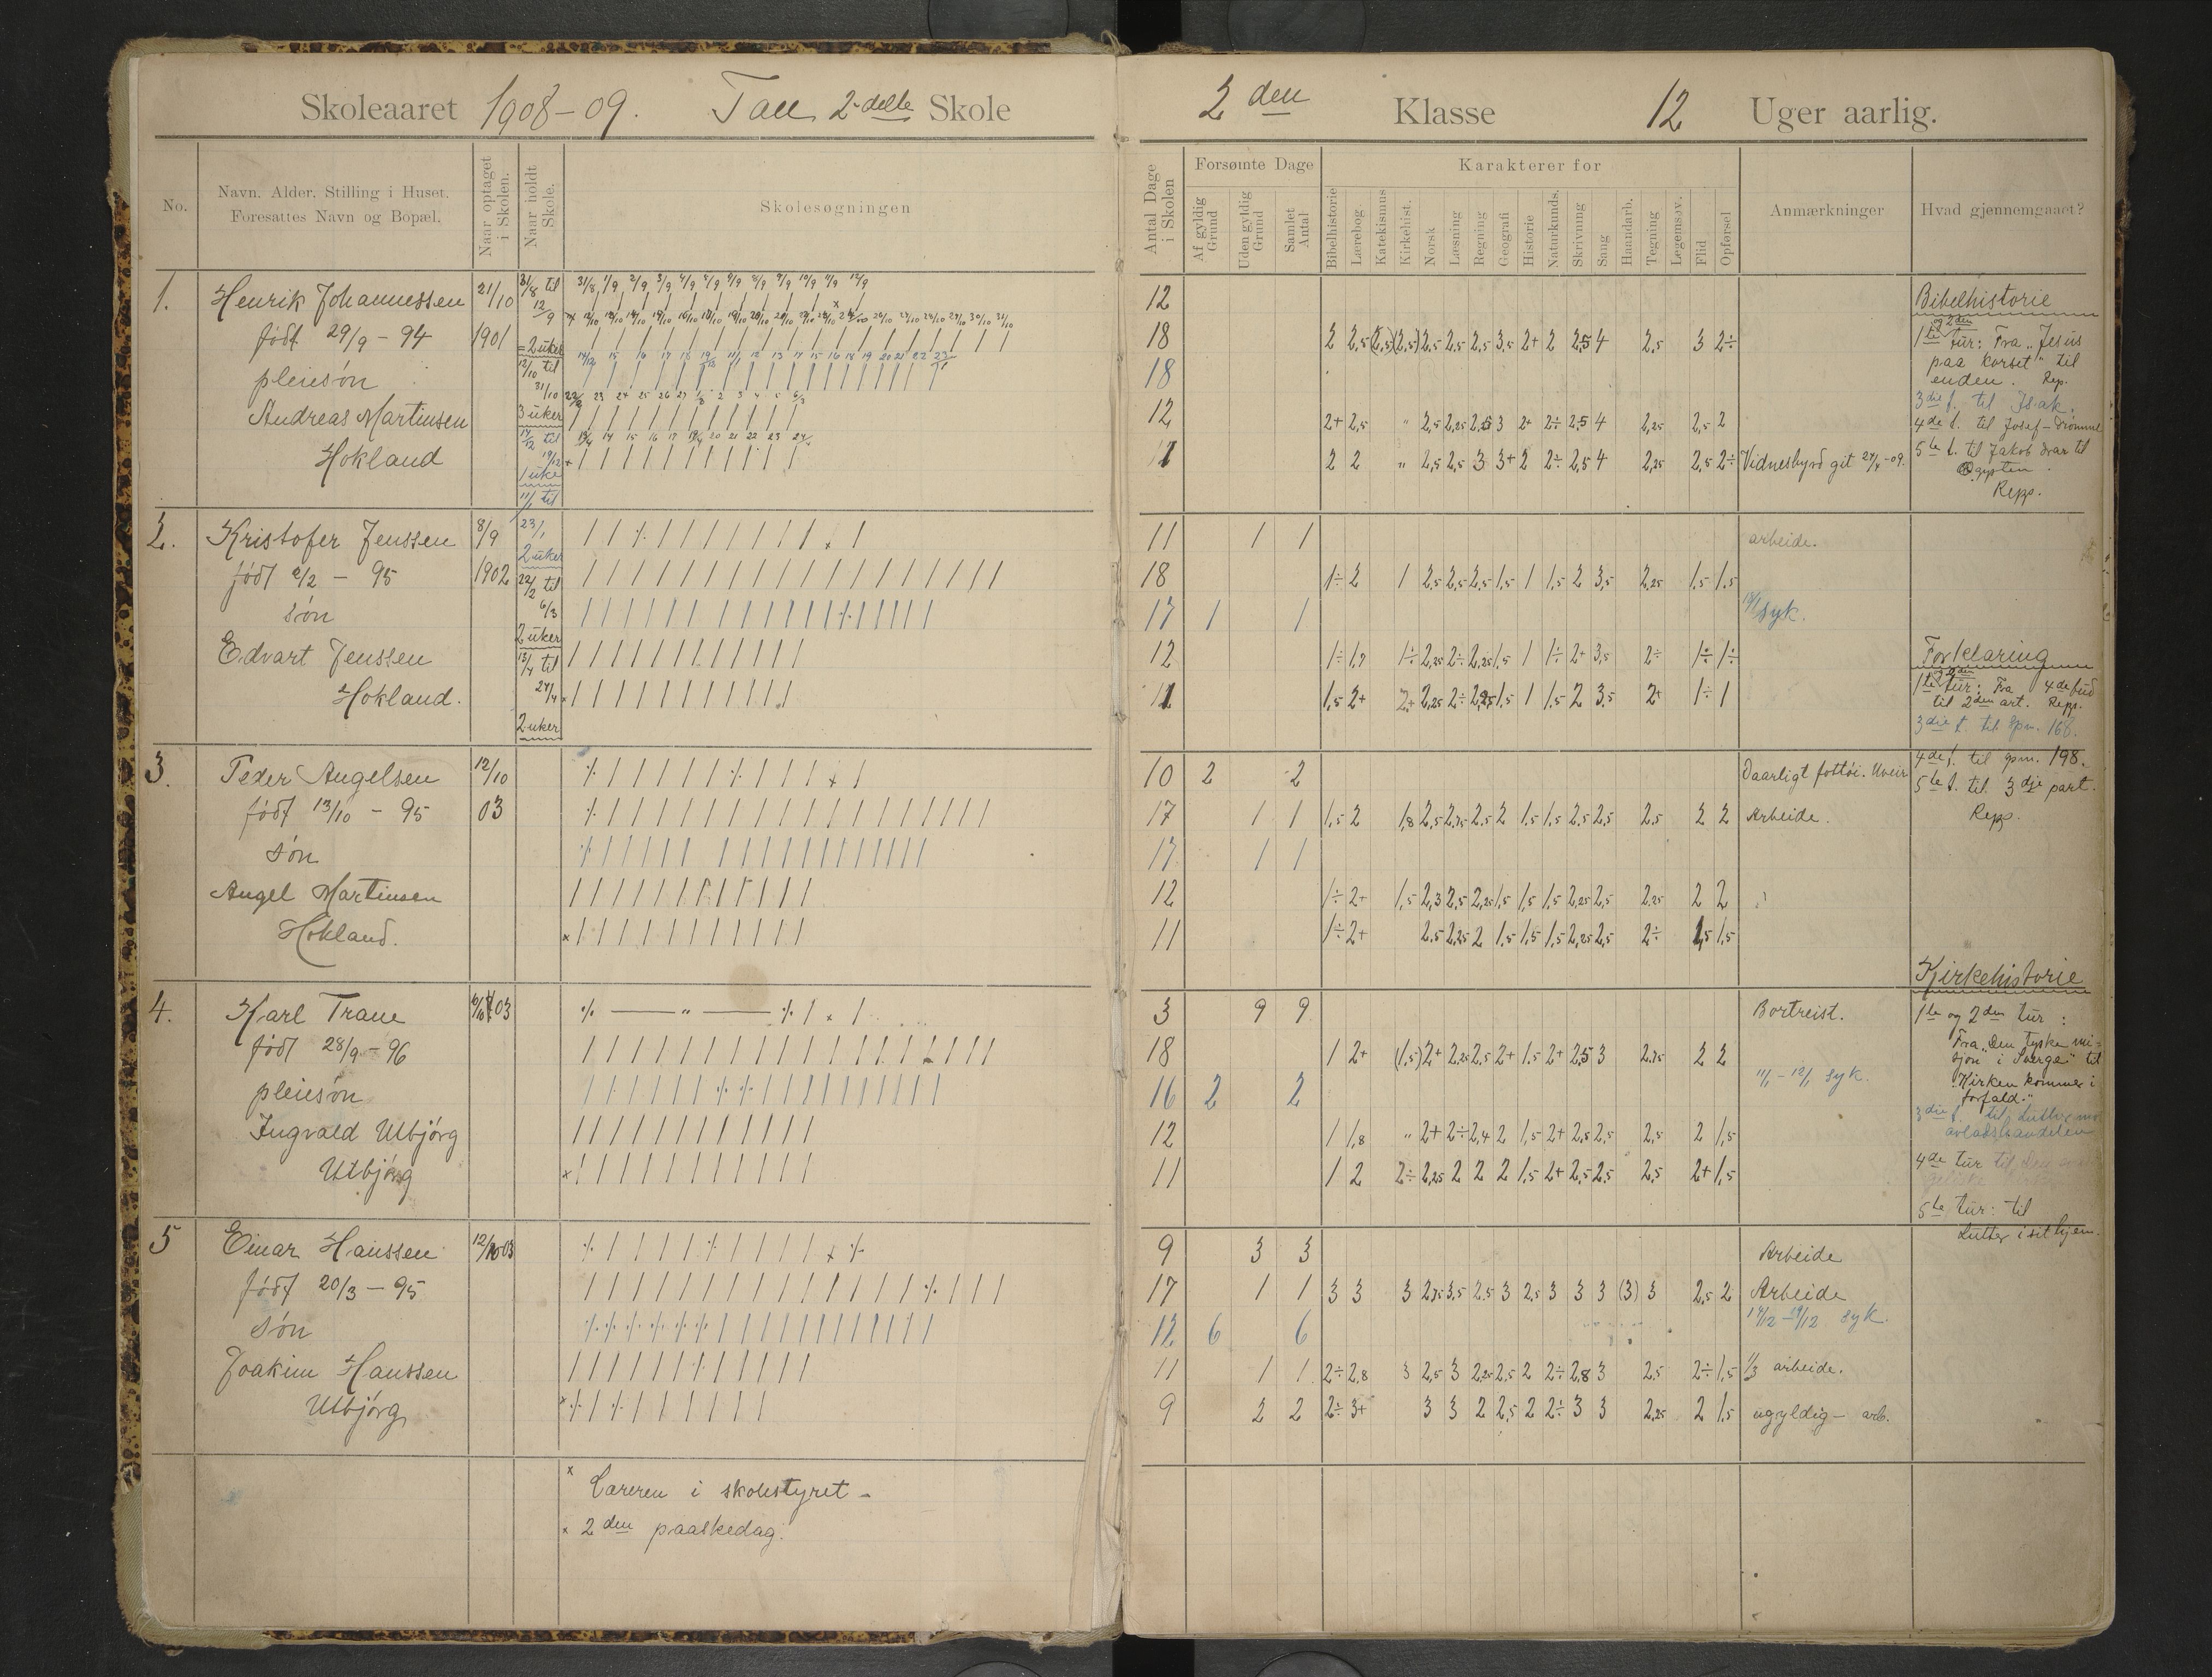 Skoleaaret 1908-09. Taen 2-delte Skole
No.
Navn. Alder. Stilling i Huset.
Foresattes Navn og Bopæl.
Naar optaget
i Skolen.
Naar holdt
Skole.
Skolesøgningen
1.
Henrik Johannessen 21/10
født 29/9 - 94 1901
pleiesøn
Andreas Martinsen
Hokland
31/8 til
12/9
= 2 uker
12/10 til
31/10
3 uker
14/12 til
19/12
1 uke
11/1 til
23/1
2 uker
22/2 til
6/3
2 uker
13/4 til
24/4
2 uker
31/8 1/9 2/9 3/9 4/9 5/9 7/9 8/9 9/9 10/9 11/9 12/9
14/12 15 16 17 18 19/12 11/1 12 13 14 15 16 18 19 20 21 22 23/1
22/2 23 24 25 26 27 1/3 2 3 4 5 6/3
13/4 14 15 16 17 19/4 20 21 22 23 24/4
2. Kristofer Jenssen 8/9
født 2/2 - 95 1902
søn
Edvart Jenssen
Hokland.
3. Peder Angelsen 12/10
født 13/10 - 95 03
søn
Angel Martinsen
Hokland.
4. Karl Trane 6/10 03
født 28/9 - 96
pleiesøn
Ingvald Utbjørg
Utbjørg
5 Einar Hanssen 12/10 03
født 20/3 - 95
søn
Joakim Hanssen
Utbjørg
x Læreren i skolestyret -
x 2den paaskedag.
2den Klasse 12 Uger aarlig.
Antal Dage
i Skolen
Forsømte Dage
Af gyldig
Grund
Uden gyldig
Grund
Samlet
Antal
Karakterer for
Bibelhistorie
Lærebog.
Katekismus
Kirkehist.
Norsk
Læsning
Regning
Geografi
Historie
Naturkunds.
Skrivning
Sang
Haandarb.
Tegning
Legemsøv.
Flid
Opførsel
Anmærkninger
Hvad gjennemgaaet?
12
18 2 2,5 (2,5) (2,5) 2,5 2,5 2,5 3,5 2+ 2 2,5 4 2,5 3 2÷
18
12 2+ 2,5 " 2,5 2,25 2,25 3 2+ 2÷ 2,5 4 2,25 2,5 2
11 2 2 " 2,5 2,5 3 3+ 2 2÷ 2,5 4 2,25 2,5 2÷ Vidnesbyrd git 24/4 -09.
11 1 1 arbeide.
18 1÷ 2 1 2,5 2,5 2,5 1,5 1 1,5 2 3,5 2,25 1,5 1,5
17 1 1 syk.
12 1÷ 1,7 1÷ 2,25 2÷ 2,25 1,5 1 1÷ 2+ 3,5 2÷ 1÷ 1÷
11 1,5 2+ 2+ 2,25 2÷ 2,25 1,5 1 1,5 2 3,5 2+ 1÷ 1
10 2 2 Daarligt fottøi. Uveir
17 1 1 1,5 2 1,8 2,5 2,75 2,5 2 1,5 1,5 2,5 2,5 2,5 2 2 Arbeide.
17 1 1
12 1÷ 2+ 1,5 2,3 2,5 2,25 1,5 1,5 1,5 2,25 2,5 2,25 2 2
11 1÷ 2+ 2,5 2,25 2 1,5 1,5 1,5 2,25 2,5 2÷ 1,5 1,5
3 9 9 Bortreist.
18 1 2+ (1,5) 2+ 2,25 2,5 2+ 1,5 2+ 2,5 3 2,25 2 2
16 2 2 11/1 - 12/1 syk.
12 1 1,8 " 2+ 2÷ 2,4 2 1,5 2+ 2,5 2,5 2,5 2 1,5
11 1 2 2÷ 2,25 2 2 2 1,5 2+ 2,5 2,5 2,5 2+ 1,5
9 3 3 Arbeide
17 1 1 3 3 3 2,75 3,5 2,5 3 2,5 3 3 3 (3) 3 2,5 2 Arbeide
12 6 6 14/12 - 19/12 syk.
11 1 1 2÷ 2,8 3 2,5 3 2,25 2,5 2 2÷ 2,8 3 2,5 2÷ 1,5 1/3 arbeide.
9 2 2 2÷ 3+ 3 3 2 2,5 2 2÷ 3 3 2,25 2 1,5 ugyldig - arb.
Bibelhistorie
1te og 2den tur: Fra "Jesus
paa korset" til
enden. Rep.
3die t. til Isak.
4de t. til Josef-drømme
5te t. til Jakob drar til
Ægypten.
Repp.
Forklaring
1te og 2den tur: Fra 4de bud
til 2den art. Repp.
3die t. til spm. 168.
4de t. til spm. 198.
5te t. til 3dje part.
Repp.
Kirkehistorie
1te og 2den tur:
Fra "Den tyske mi-
sjon" i Sverge" til
"Kirken kommer i
forfald."
3die t. til Luther mo
avladshandelen
4de tur til Den
5te tur: til
Luther i sit hjem.